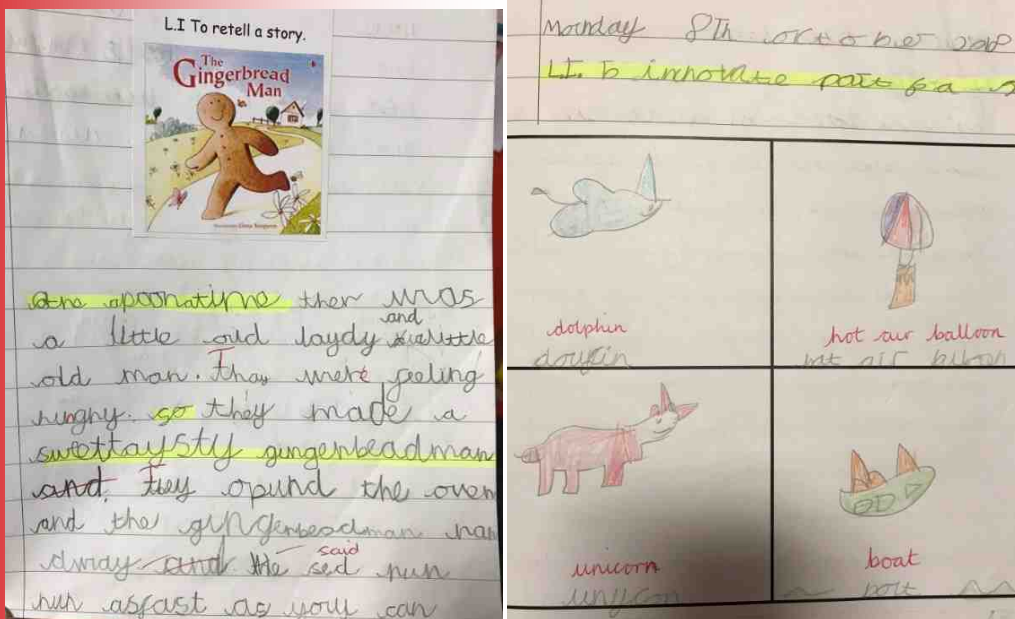 L.I To retell a story.
The
Gingerbread
Man
one apoonatime ther was
and
a little oud laydy little
old man. They were feeling
hungry. so they made a
swettaysty gingerbeadman
and. They opund the oven
and the gingerbeadman ran
away and He sed run
said
run asfast as you can
Monday 8Th october
L.I. to innovate part
dolphin
hot air balloon
hot air
unicorn
unycon
boat
bout